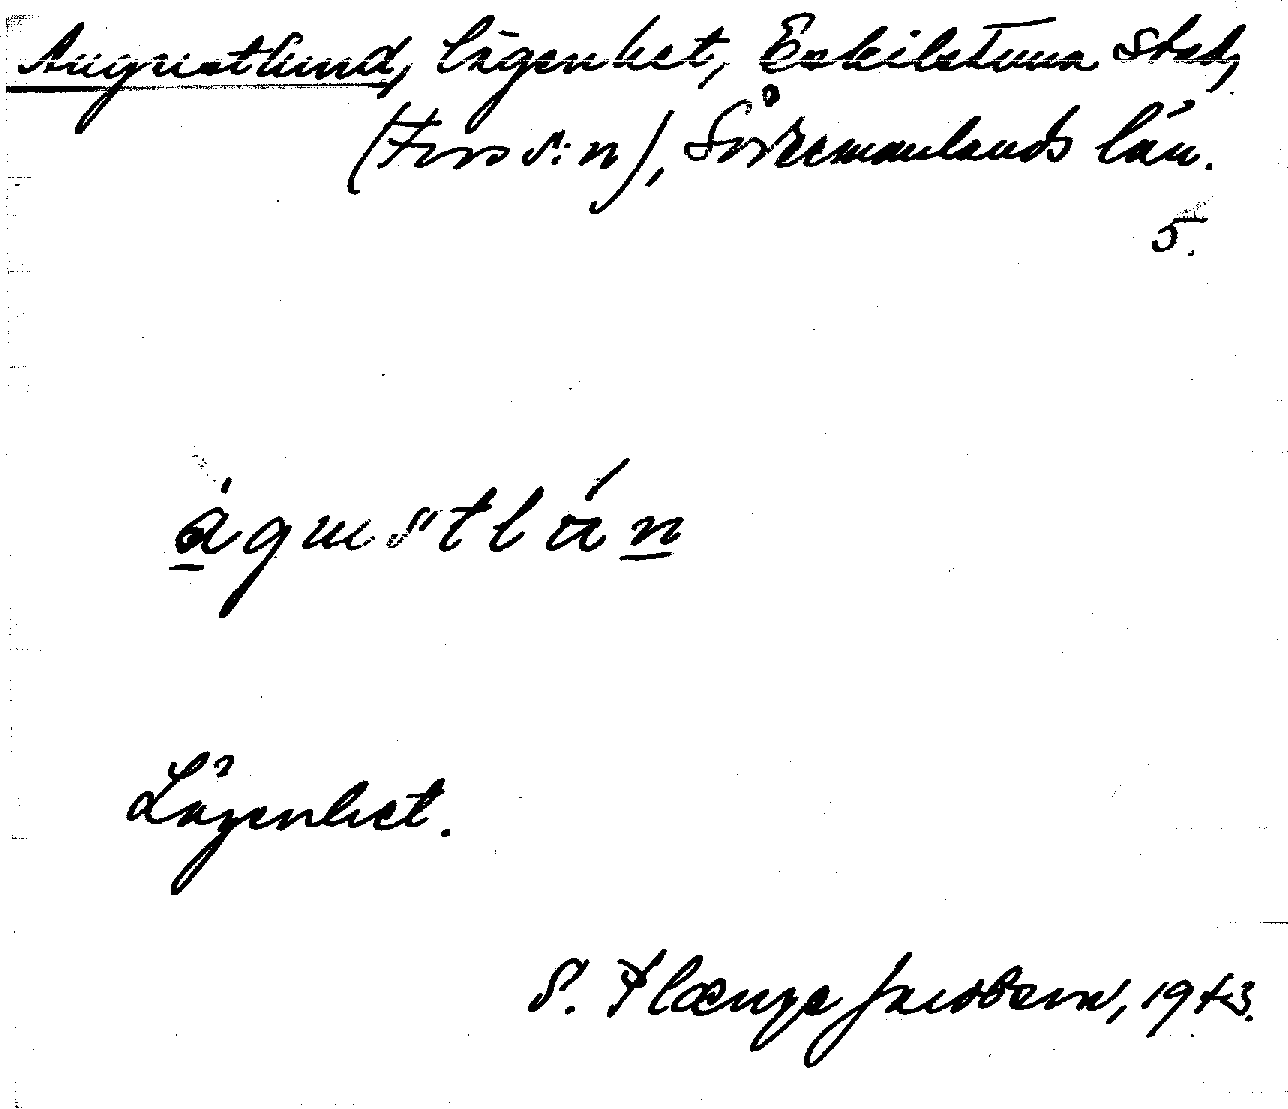 Augustlund, lägenhet, Eskilstuna stad,
(Fors s:n), Södermanlands län.
5.
àgustlán
Lägenhet.
S. Flænze Jacobsen, 1943.